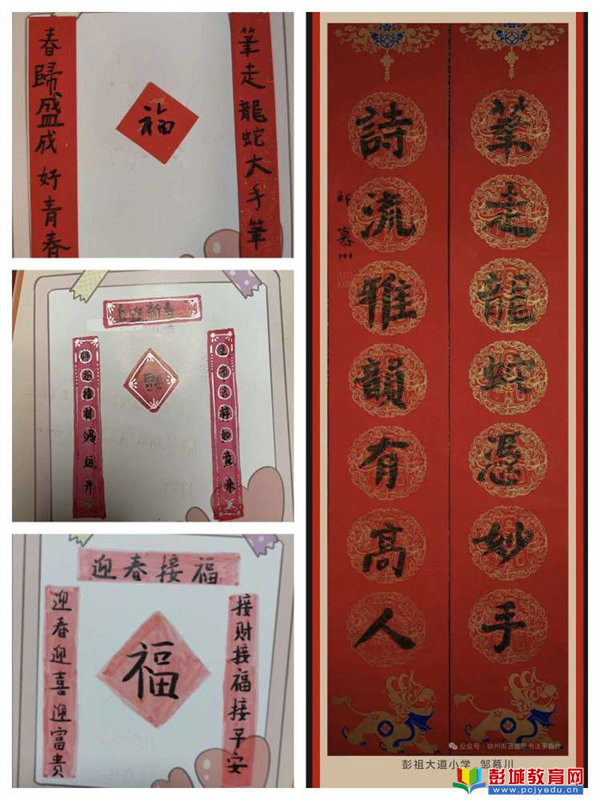 筆走龍蛇大手筆
春歸盛成好青春
福
鴻运开
迎春接福
迎春迎喜迎富贵
接财接福接平安
福
筆走龍蛇憑妙手
詩流雅韻有高人
公众号 · 徐州市云龙区书法家协会
彭祖大道小学 邹慕川
彭城教育网
www.pcjyedu.cn